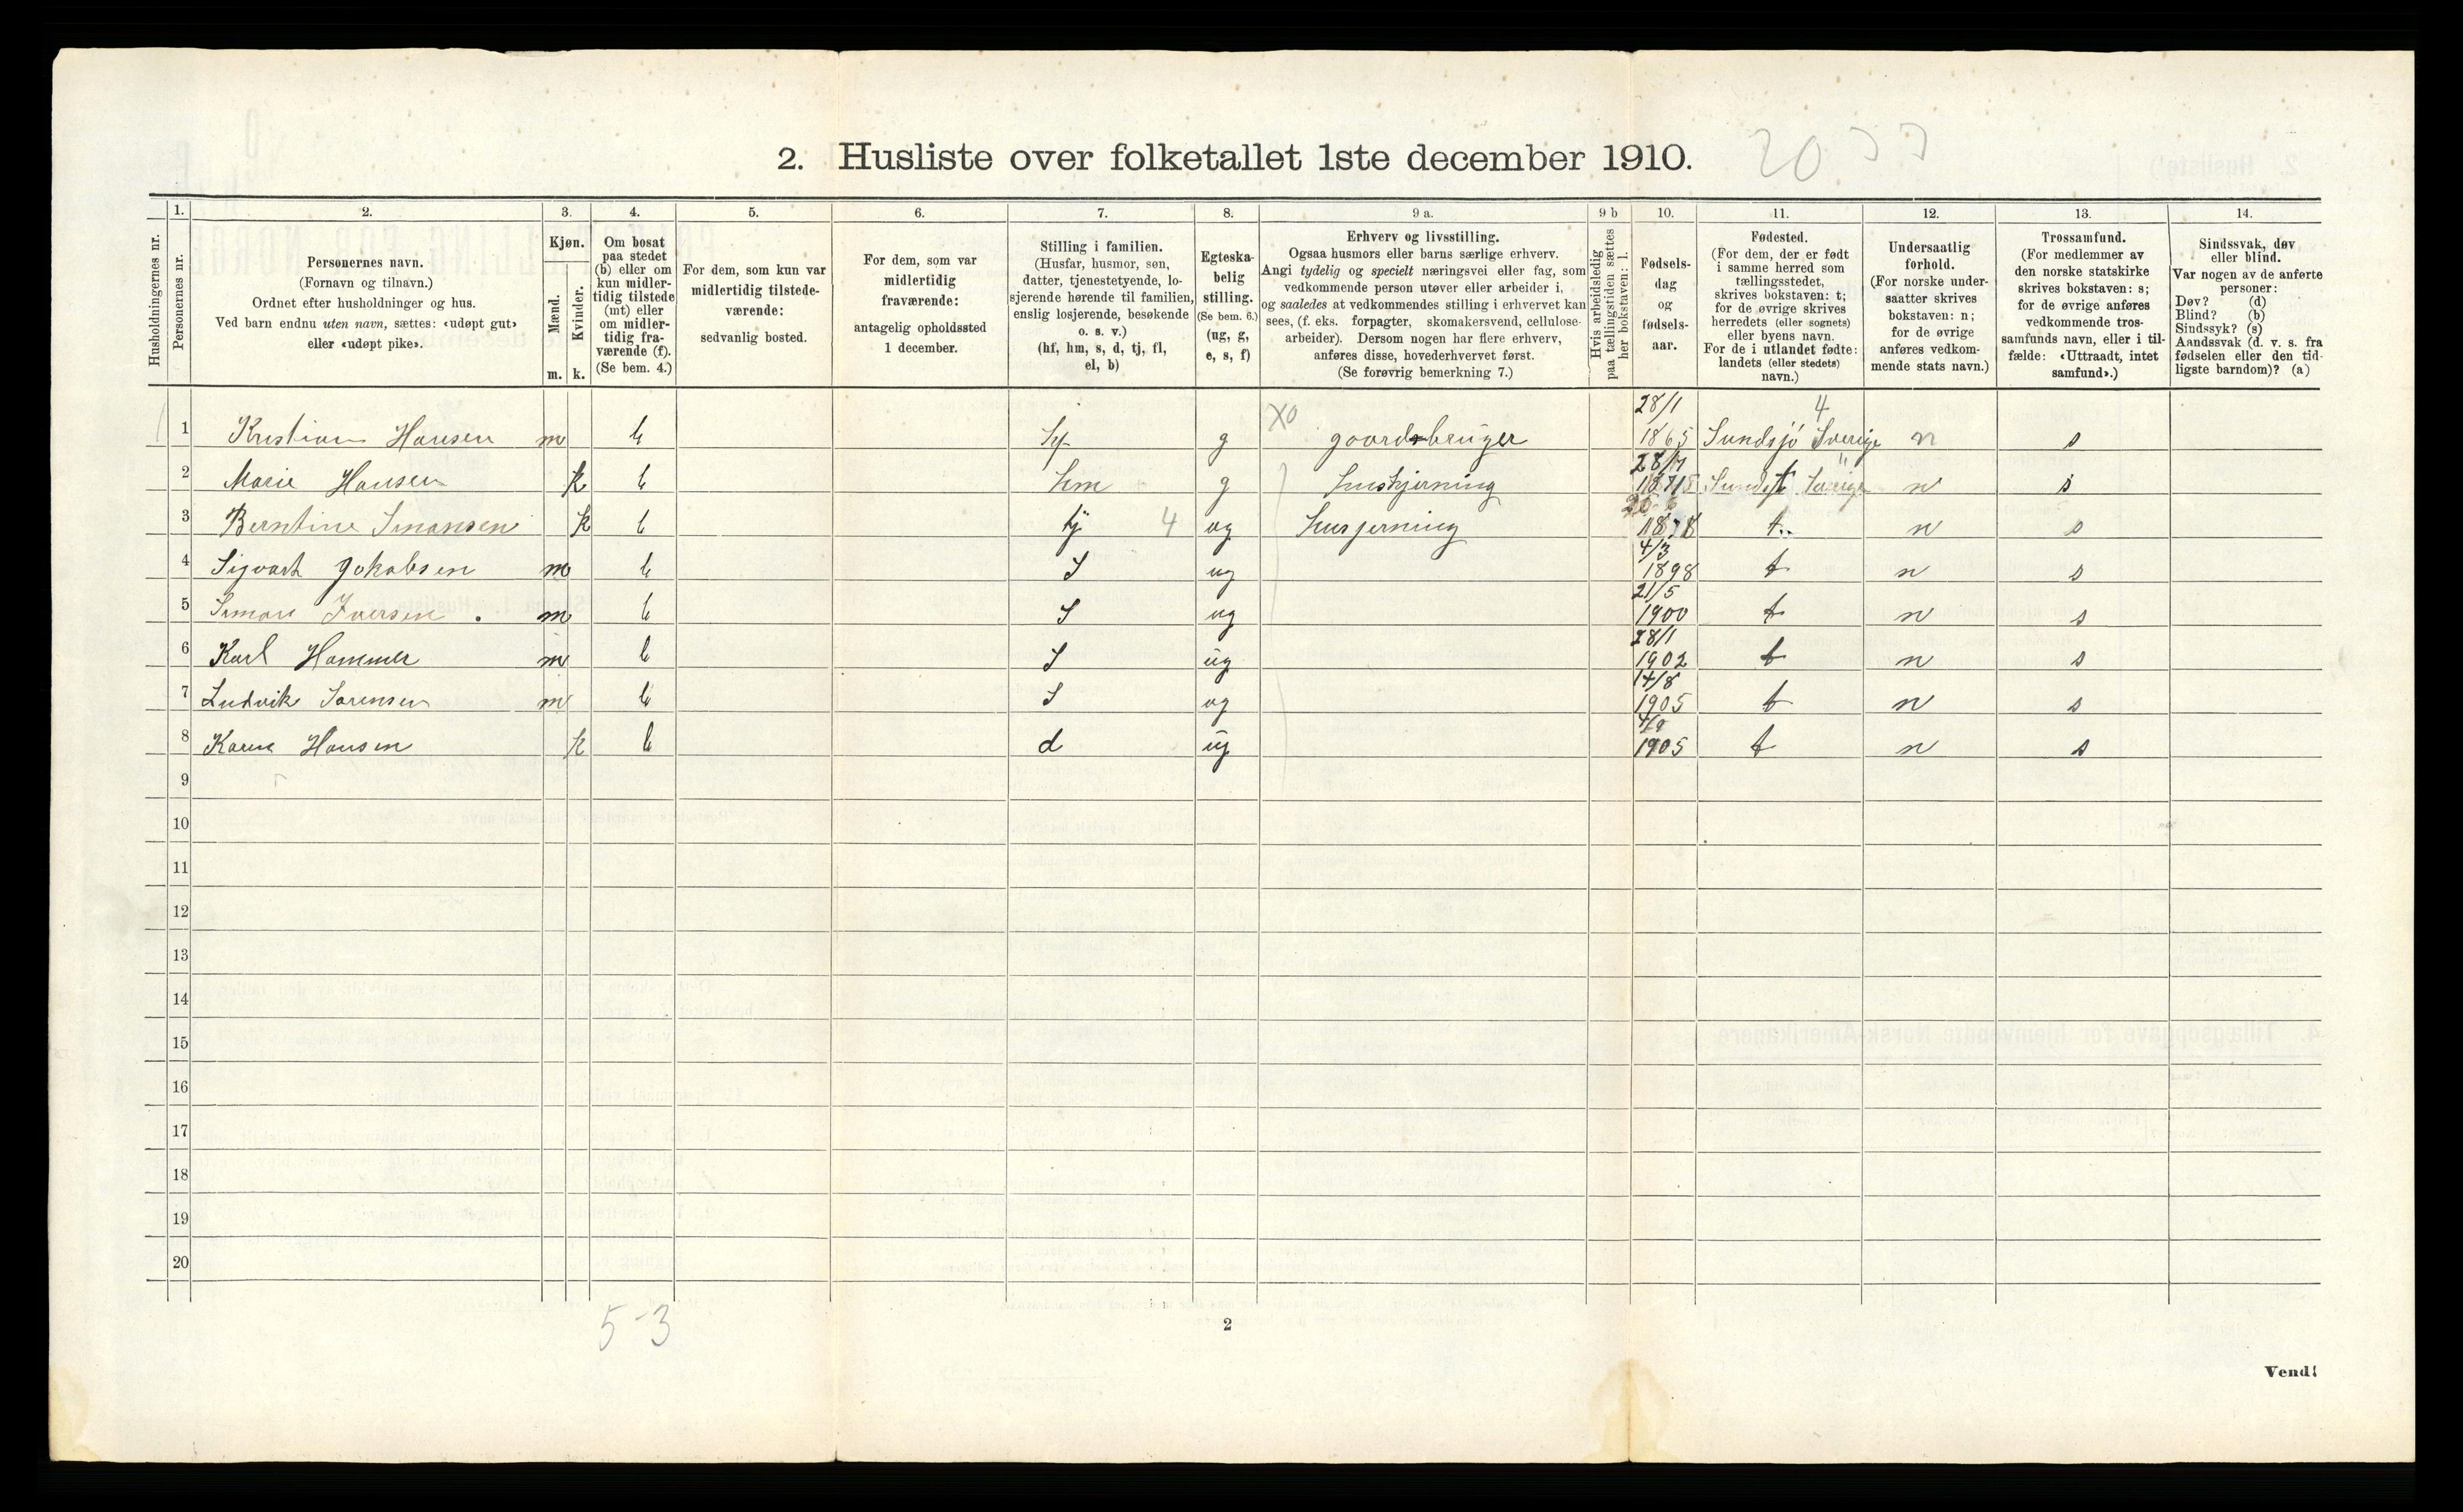 2. Husliste over folketallet 1ste december 1910.
1. 2. 3. 4. 5. 6. 7. 8. 9 a. 9 b 10. 11. 12. 13. 14.
Husholdningernes nr.
Personernes nr.
Personernes navn.
(Fornavn og tilnavn.)
Ordnet efter husholdninger og hus.
Ved barn endnu uten navn, sættes: «udøpt gut»
eller «udøpt pike».
Kjøn.
Mænd.
Kvinder.
m. k.
Om bosat
paa stedet
(b) eller om
kun midler-
tidig tilstede
(mt) eller
om midler-
tidig fra-
værende (f).
(Se bem. 4.)
For dem, som kun var
midlertidig tilstede-
værende:
sedvanlig bosted.
For dem, som var
midlertidig
fraværende:
antagelig opholdssted
1 december.
Stilling i familien.
(Husfar, husmor, søn,
datter, tjenestetyende, lo-
sjerende hørende til familien,
enslig losjerende, besøkende
o. s. v.)
(hf, hm, s, d, tj, fl,
el, b)
Egteska-
belig
stilling.
(Se bem. 6.)
(ug, g,
e, s, f)
Erhverv og livsstilling.
Ogsaa husmors eller barns særlige erhverv.
Angi tydelig og specielt næringsvei eller fag, som
vedkommende person utøver eller arbeider i,
og saaledes at vedkommendes stilling i erhvervet kan
sees, (f. eks. forpagter, skomakersvend, cellulose-
arbeider). Dersom nogen har flere erhverv,
anføres disse, hovederhvervet først.
(Se forøvrig bemerkning 7.)
Hvis arbeidsledig
paa tællingstiden sættes
her bokstaven: l.
Fødsels-
dag
og
fødsels-
aar.
Fødested.
(For dem, der er født
i samme herred som
tællingsstedet,
skrives bokstaven: t;
for de øvrige skrives
herredets (eller sognets)
eller byens navn.
For de i utlandet fødte:
landets (eller stedets)
navn.)
Undersaatlig
forhold.
(For norske under-
saatter skrives
bokstaven: n;
for de øvrige
anføres vedkom-
mende stats navn.)
Trossamfund.
(For medlemmer av
den norske statskirke
skrives bokstaven: s;
for de øvrige anføres
vedkommende tros-
samfunds navn, eller i til-
fælde: «Uttraadt, intet
samfund».)
Sindssvak, døv
eller blind.
Var nogen av de anførte
personer:
Døv? (d)
Blind? (b)
Sindssyk? (s)
Aandssvak (d. v. s. fra
fødselen eller den tid-
ligste barndom)? (a)
1 Kristian Hansen m b hf g X0 gaardsbruger 28/1 1865 Sundsjö Sverige 4 n s
2 Marie Hansen k b hm g Huskjerning n s
3 Berntine Simonsen k b tj 4 ug Husjerning t n s
4 Sigvart Jokobsen m b S ug 4/3 1898 t n s
5 Simon Iversen m b S ug 21/5 1900 t n s
6 Karl Hammer m b S ug 28/1 1902 t n s
7 Ludvik Sørensen m b S ug 14/8 1905 t n s
8 Karen Hansen k b d ug 1905 t n s
9
10
11
12
13
14
15
16
17
18
19
20
5-3
2
Vend!